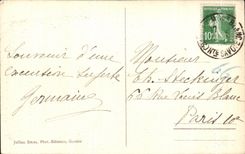 Souvenir d'une
excursion superbe
Germaine
Monsieur
Ch. Steckinger
66 Rue Louis Blanc
Paris 10e
10
Jullien frères, Phot.-Editeurs, Genève